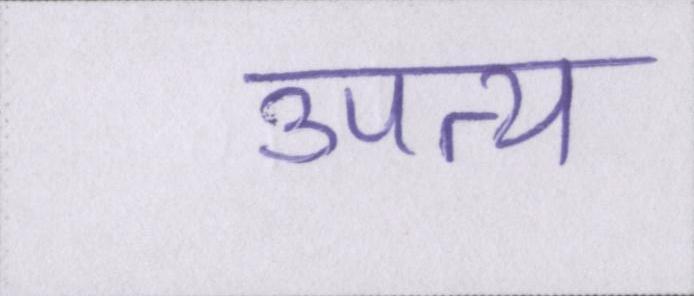 उपत्य